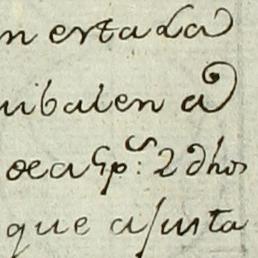 n esta La
uibalen a
de a 4 p.s 2 dhos
que ajusta